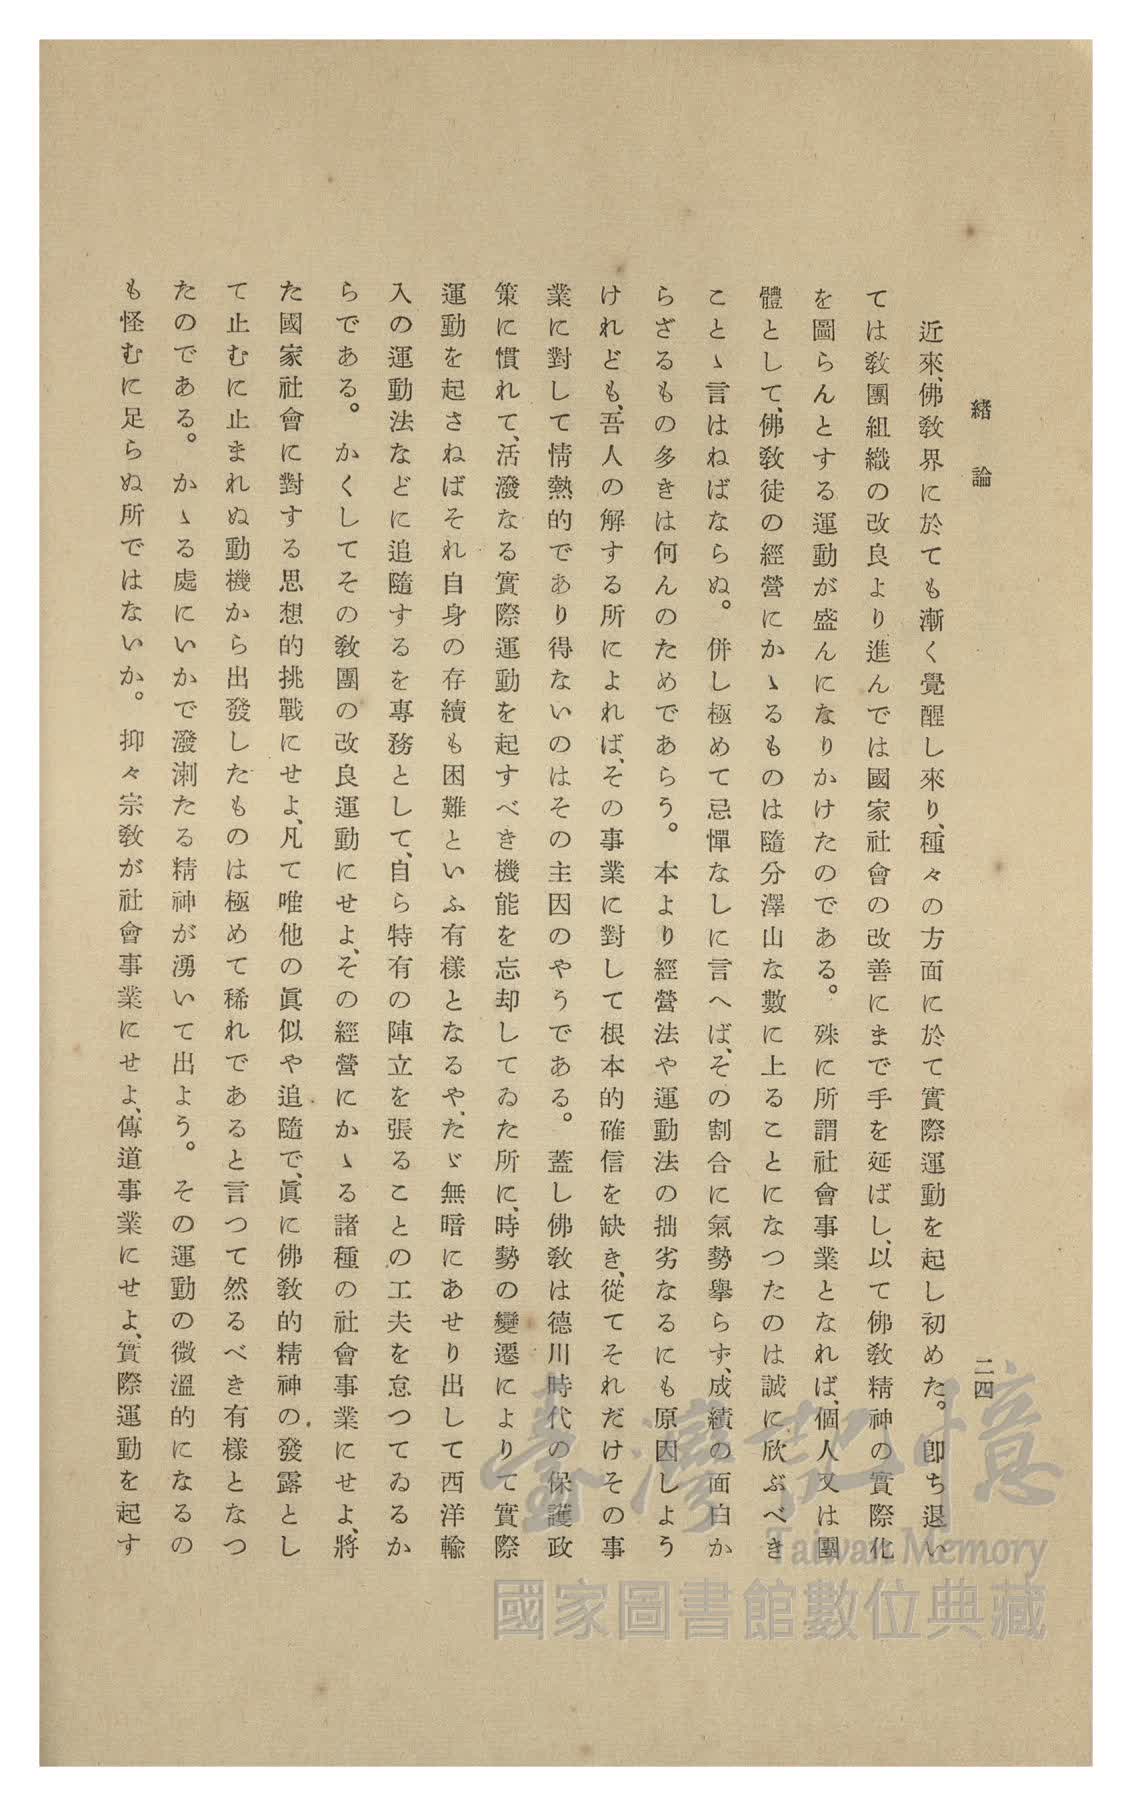 緒論
二四
近來、佛教界に於ても漸く覺醒し來り、種々の方面に於て實際運動を起し初めた。卽ち退い
ては敎團組織の改良より進んでは國家社會の改善にまで手を延ばし、以て佛敎精神の實際化
を圖らんとする運動が盛んになりかけたのである。殊に所謂社會事業となれば、個人又は團
體として、佛敎徒の經營にかゝるものは隨分澤山な數に上ることになつたのは誠に欣ぶべき
ことゝ言はねばならぬ。併し極めて忌憚なしに言へば、その割合に氣勢擧らず、成績の面白か
らざるもの多きは何んのためであらう。本より經營法や運動法の拙劣なるにも原因しよう
けれども、吾人の解する所によれば、その事業に對して根本的確信を缺き、從てそれだけその事
業に對して情熱的であり得ないのはその主因のやうである。蓋し佛敎は德川時代の保護政
策に慣れて、活潑なる實際運動を起すべき機能を忘却してゐた所に、時勢の變遷によりて實際
運動を起さねばそれ自身の存續も困難といふ有樣となるや、たゞ無暗にあせり出して西洋輸
入の運動法などに追隨するを專務として、自ら特有の陣立を張ることの工夫を怠つてゐるか
らである。かくしてその敎團の改良運動にせよ、その經營にかゝる諸種の社會事業にせよ、將
た國家社會に對する思想的挑戰にせよ、凡て唯他の眞似や追隨で、眞に佛敎的精神の發露とし
て止むに止まれぬ動機から出發したものは極めて稀れであると言つて然るべき有樣となつ
たのである。かゝる處にいかで潑溂たる精神が湧いて出よう。その運動の微溫的になるの
も怪むに足らぬ所ではないか。抑々宗敎が社會事業にせよ、傳道事業にせよ、實際運動を起す
臺灣記憶
Taiwan Memory
國家圖書館數位典藏